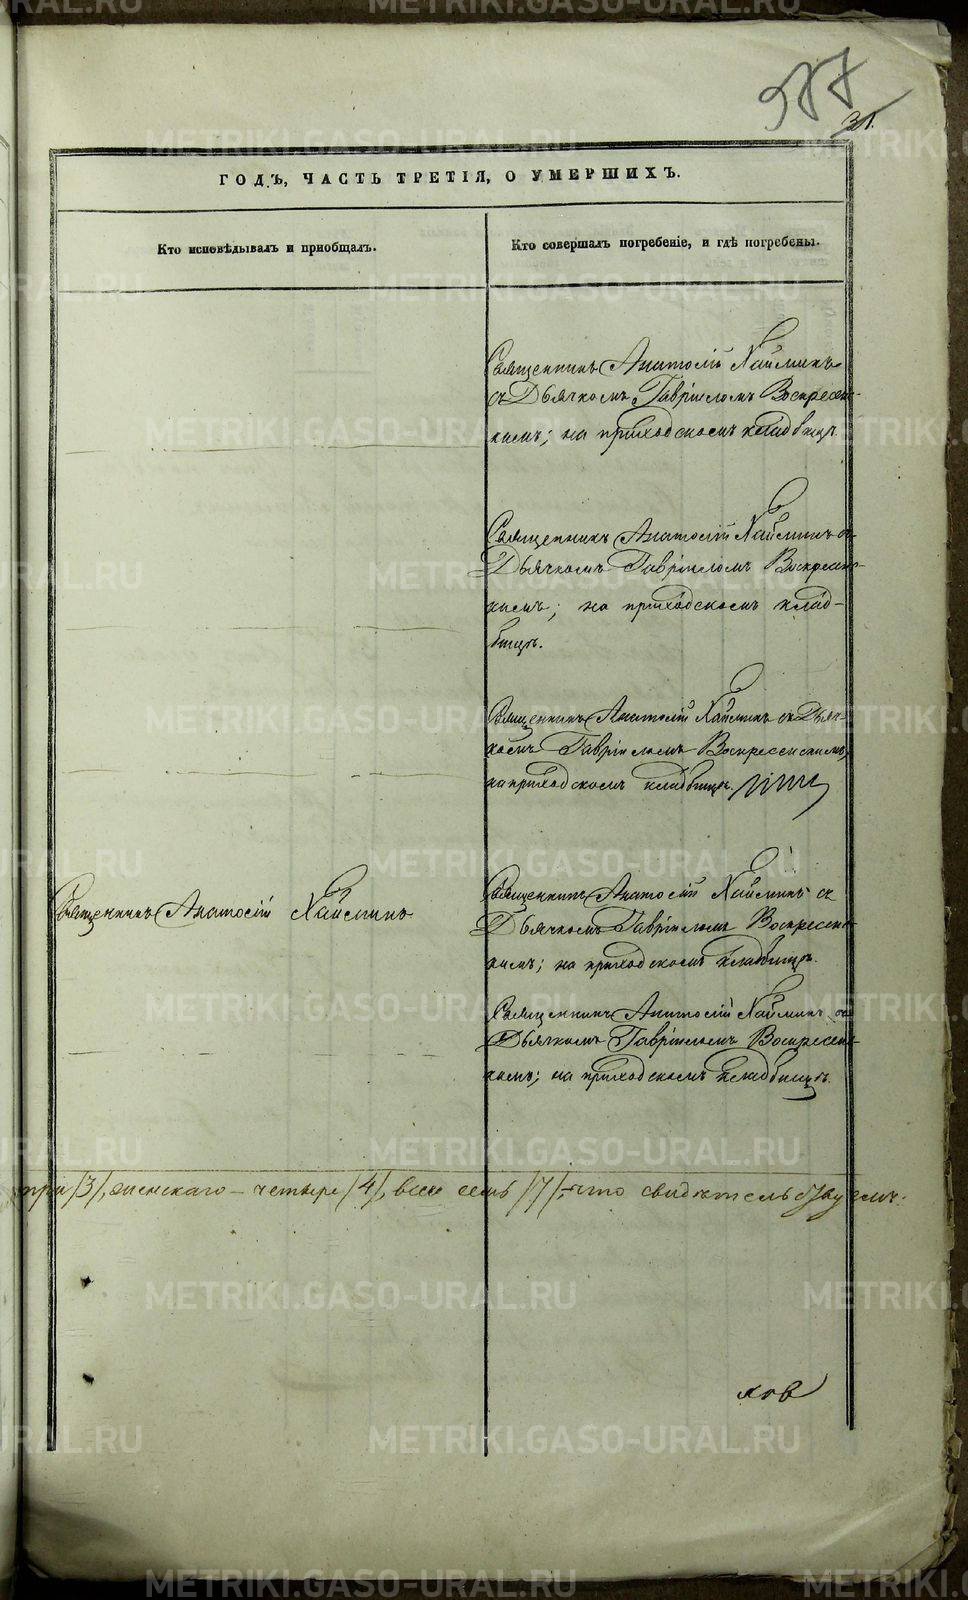 587
31.
ГОДЪ, ЧАСТЬ ТРЕТІЯ, О УМЕРШИХЪ.
Кто исповѣдывалъ и пріобщалъ.
Кто совершалъ погребеніе, и гдѣ погребены.
Священникъ Анатолій Хаймин
съ Дьячкомъ Гавріиломъ Воскресен-
скимъ; на приходскомъ кладбищѣ.
Священникъ Анатолій Хаймин съ
Дьячкомъ Гавріиломъ Воскресен-
скимъ; на приходскомъ клад-
бищѣ.
Священникъ Анатолій Хаймин съ Дьяч-
комъ Гавріиломъ Воскресенскимъ,
на приходскомъ кладбищѣ.
Священникъ Анатолій Хаймин
Священникъ Анатолій Хаймин съ
Дьячкомъ Гавріиломъ Воскресен-
скимъ; на приходскомъ кладбищѣ.
Священникъ Анатолій Хаймин съ
Дьячкомъ Гавріиломъ Воскресен-
скимъ; на приходскомъ кладбищѣ.
три /3/, женскаго - четыре /4/, всего семь /7/, - что свидѣтельствуемъ.
ковъ
METRIKI.GASO-URAL.RU